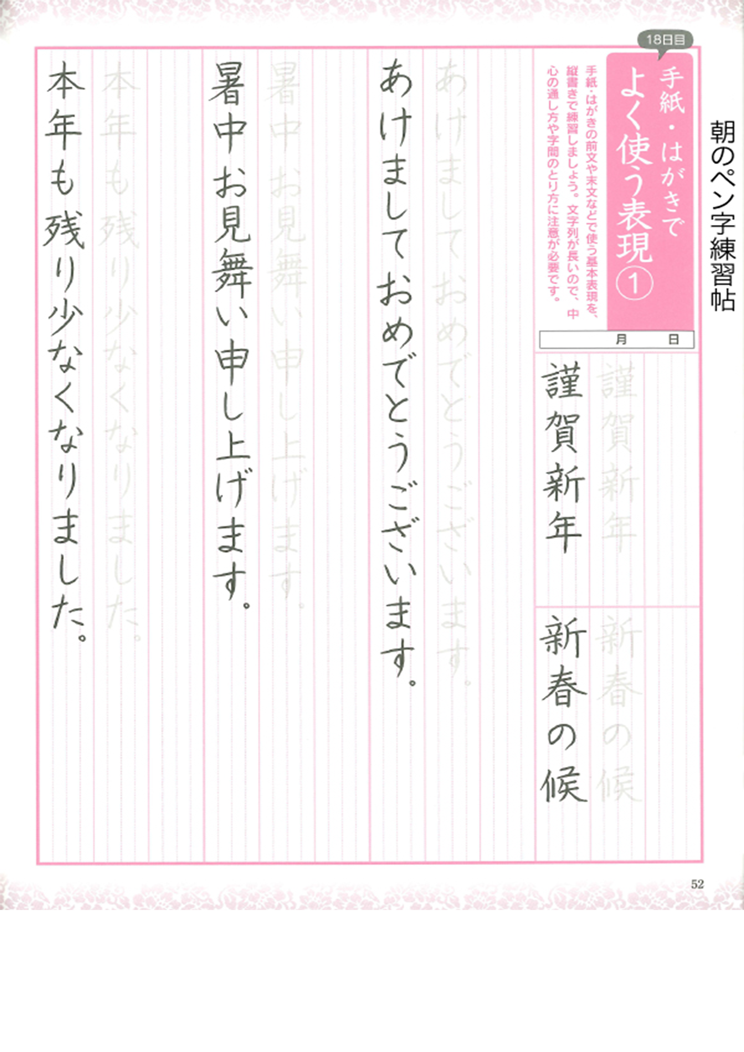 朝のペン字練習帖
18日目
手紙・はがきで
よく使う表現①
手紙・はがきの前文や末文などで使う基本表現を、
縦書きで練習しましょう。文字列が長いので、中
心の通し方や字間のとり方に注意が必要です。
月 日
謹賀新年
謹賀新年
新春の候
新春の候
あけましておめでとうございます。
あけましておめでとうございます。
暑中お見舞い申し上げます。
暑中お見舞い申し上げます。
本年も残り少なくなりました。
本年も残り少なくなりました。
52